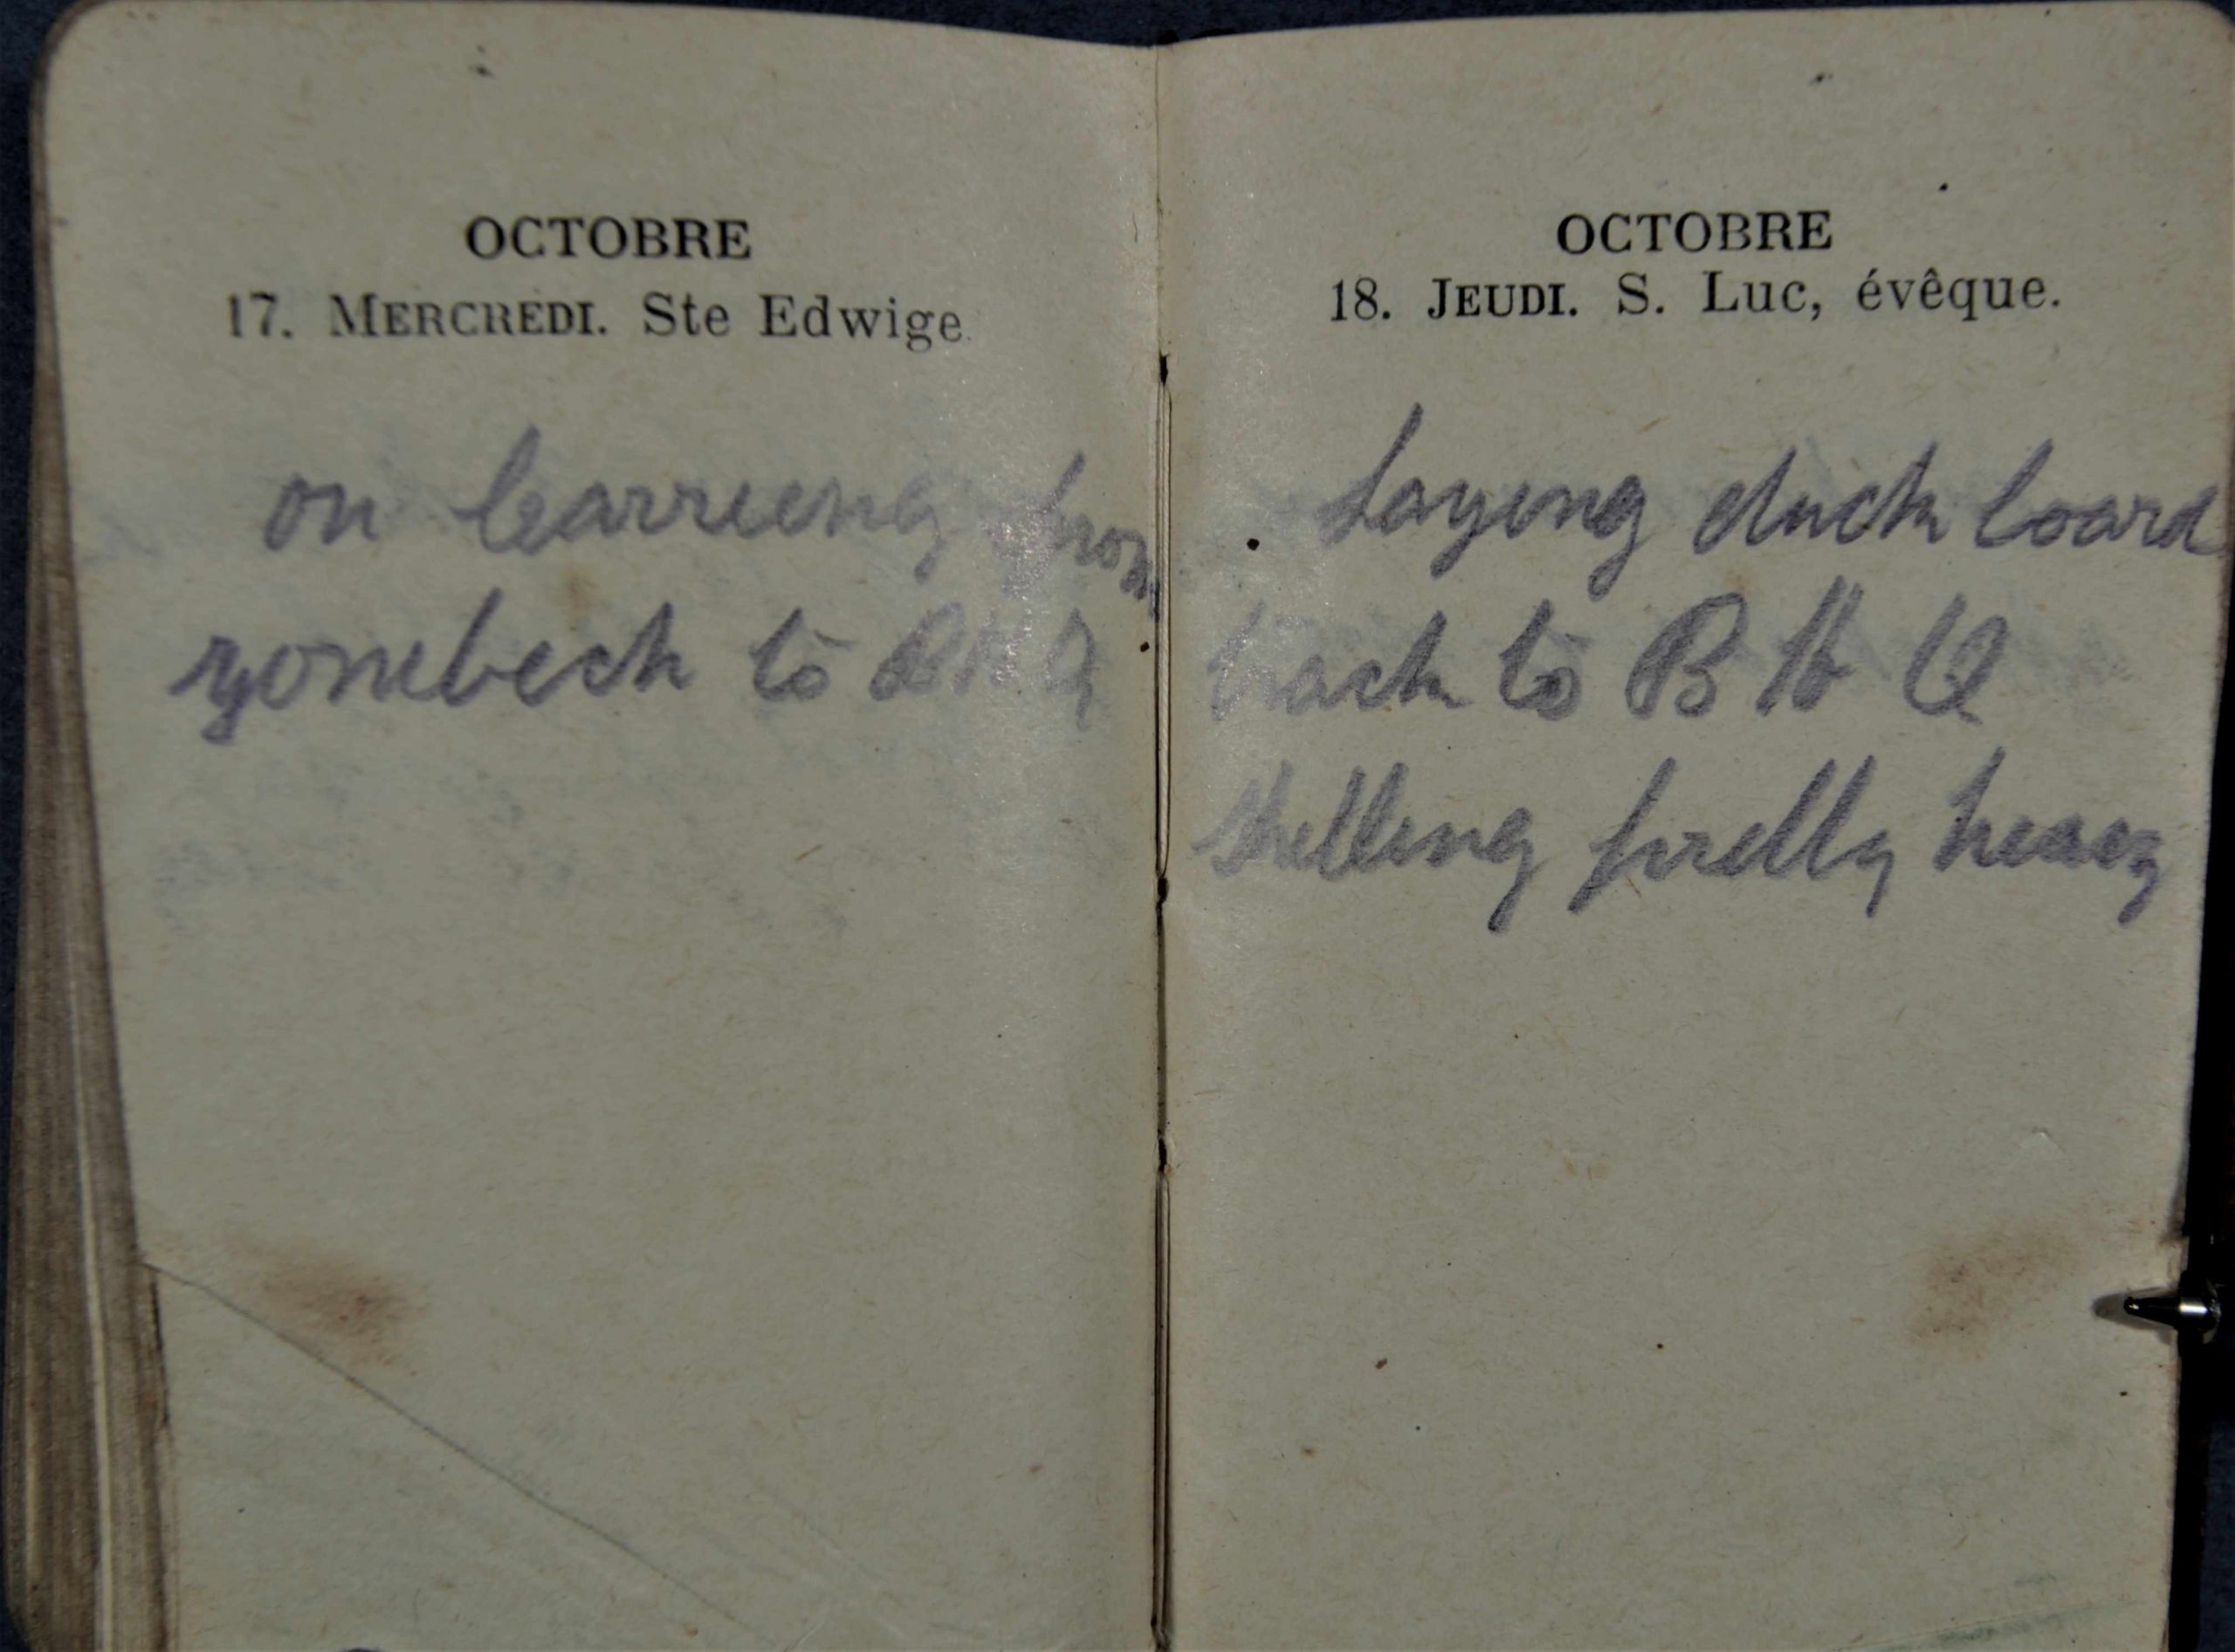 OCTOBRE
17. MERCREDI. Ste Edwige.
on carrieing from
zonnebeck to BHQ
OCTOBRE
18. JEUDI. S. Luc, évêque.
Laying duck board
track to B H Q
Shelling pretty heavy